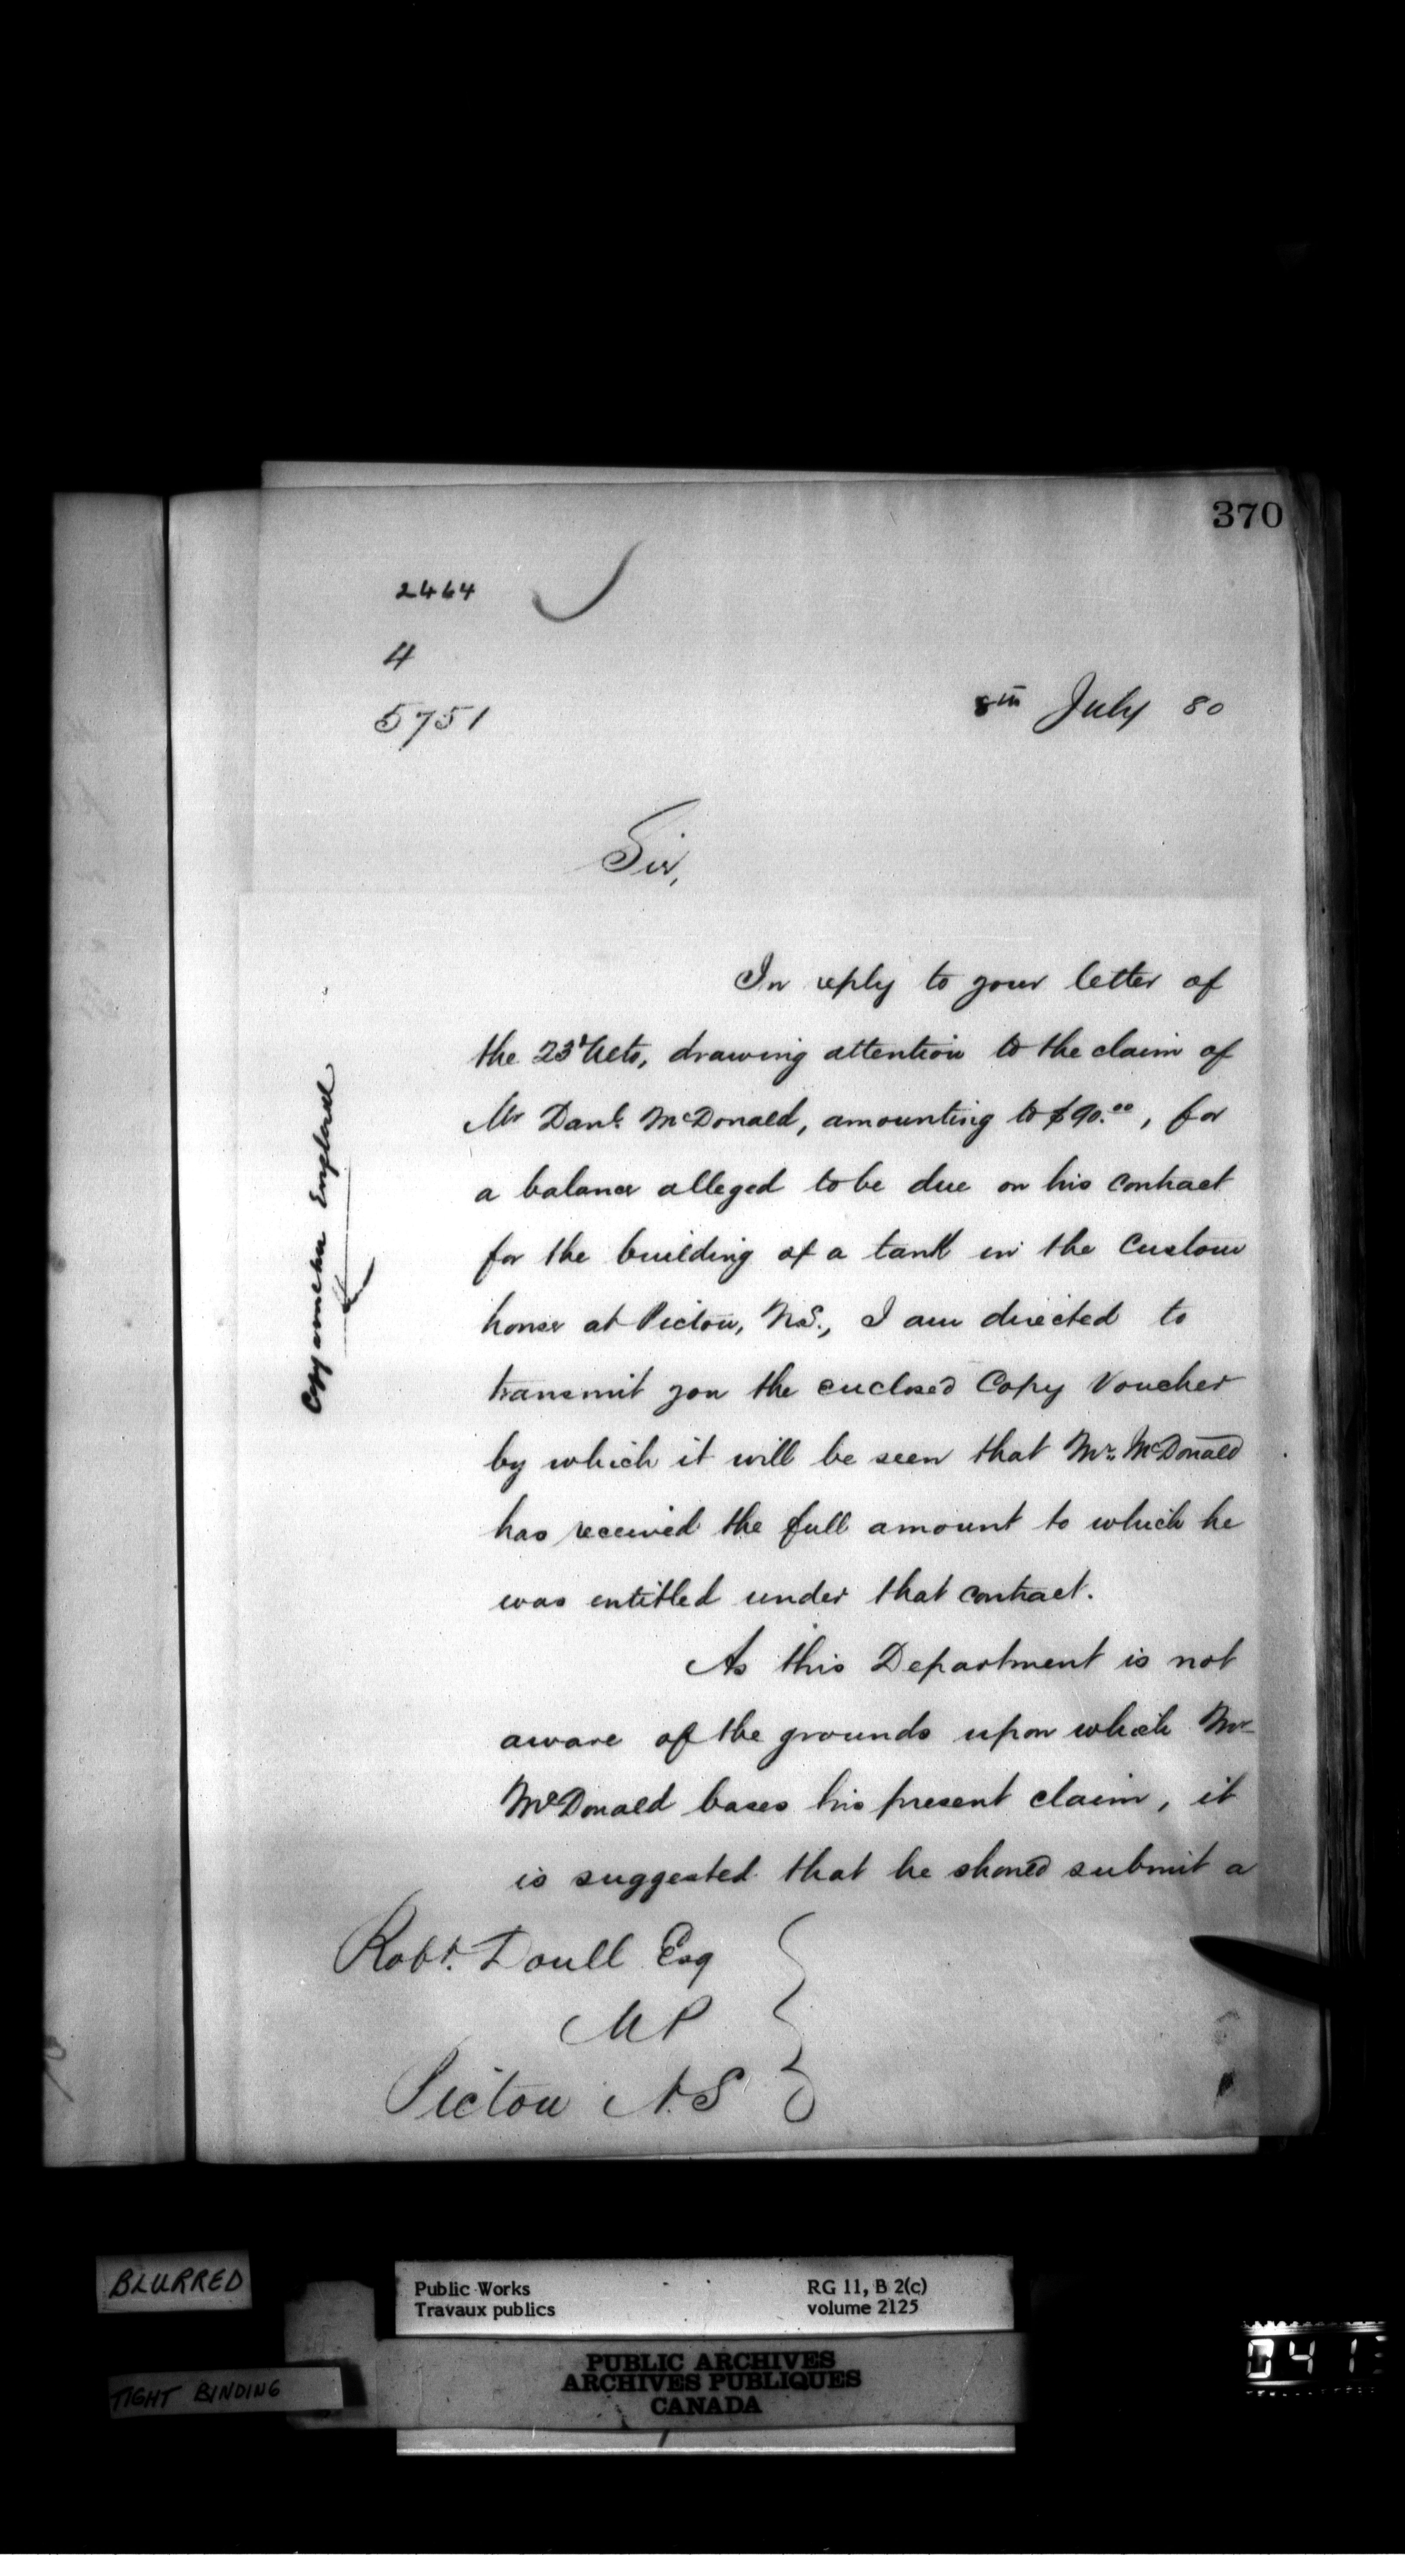 370
2464
4
5751
8th July 80
Sir,
In reply to your letter of
the 23d Ulto, drawing attention to the claim of
Mr Danl. McDonald, amounting to $90.00, for
a balance alleged to be due on his contract
for the building of a tank in the Custom
house at Pictou, N.S., I am directed to
transmit you the enclosed Copy Voucher
by which it will be seen that Mr. McDonald
has received the full amount to which he
was entitled under that contract.
As this Department is not
aware of the grounds upon which Mr
McDonald bases his present claim, it
is suggested that he should submit a
Robt. Doull Esq
MP
Pictou N.S
Copy voucher Enclosed
BLURRED
TIGHT BINDING
Public Works
Travaux publics
RG 11, B 2(c)
volume 2125
PUBLIC ARCHIVES
ARCHIVES PUBLIQUES
CANADA
041